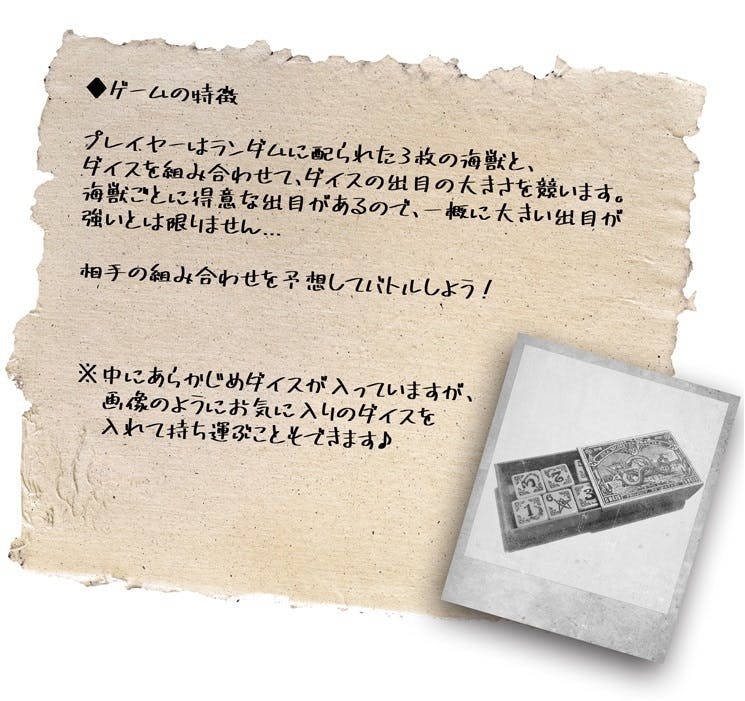 ◆ゲームの特徴
プレイヤーはランダムに配られた3枚の海獣と、
ダイスを組み合わせて、ダイスの出目の大きさを競います。
海獣ごとに得意な出目があるので、一概に大きい出目が
強いとは限りません...
相手の組み合わせを予想してバトルしよう！
※中にあらかじめダイスが入っていますが、
画像のようにお気に入りのダイスを
入れて持ち運ぶこともできます♪